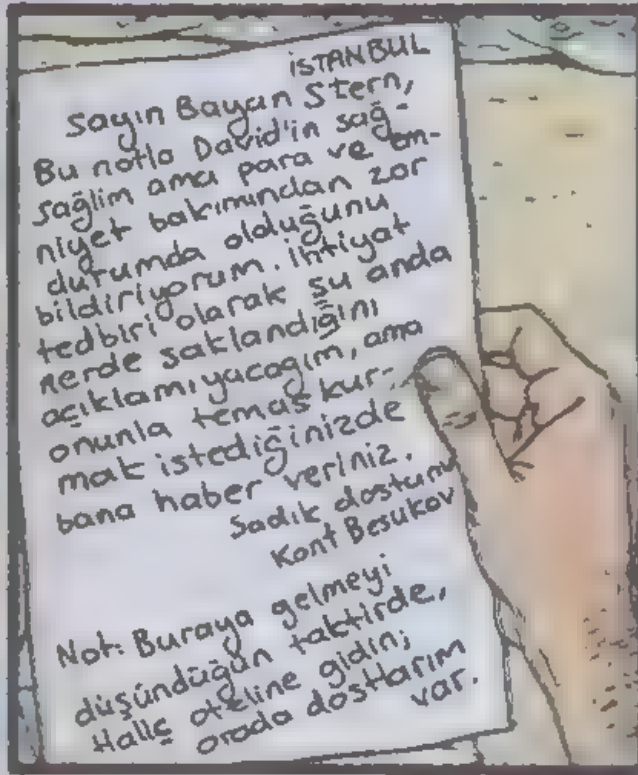 İSTANBUL
Sayın Bayan Stern,
Bu notla David'in sağ-
sağlim ama para ve em-
niyet bakımından zor
durumda olduğunu
bildiriyorum. ihtiyat
tedbiri olarak şu anda
nerde saklandığını
açıklamıyacağım, ama
onunla temas kur-
mak istediğinizde
bana haber veriniz.
Sadık dostunu
Kont Besukov
Not: Buraya gelmeyi
düşündüğün taktirde,
Haliç oteline gidin;
orada dostlarım
var.